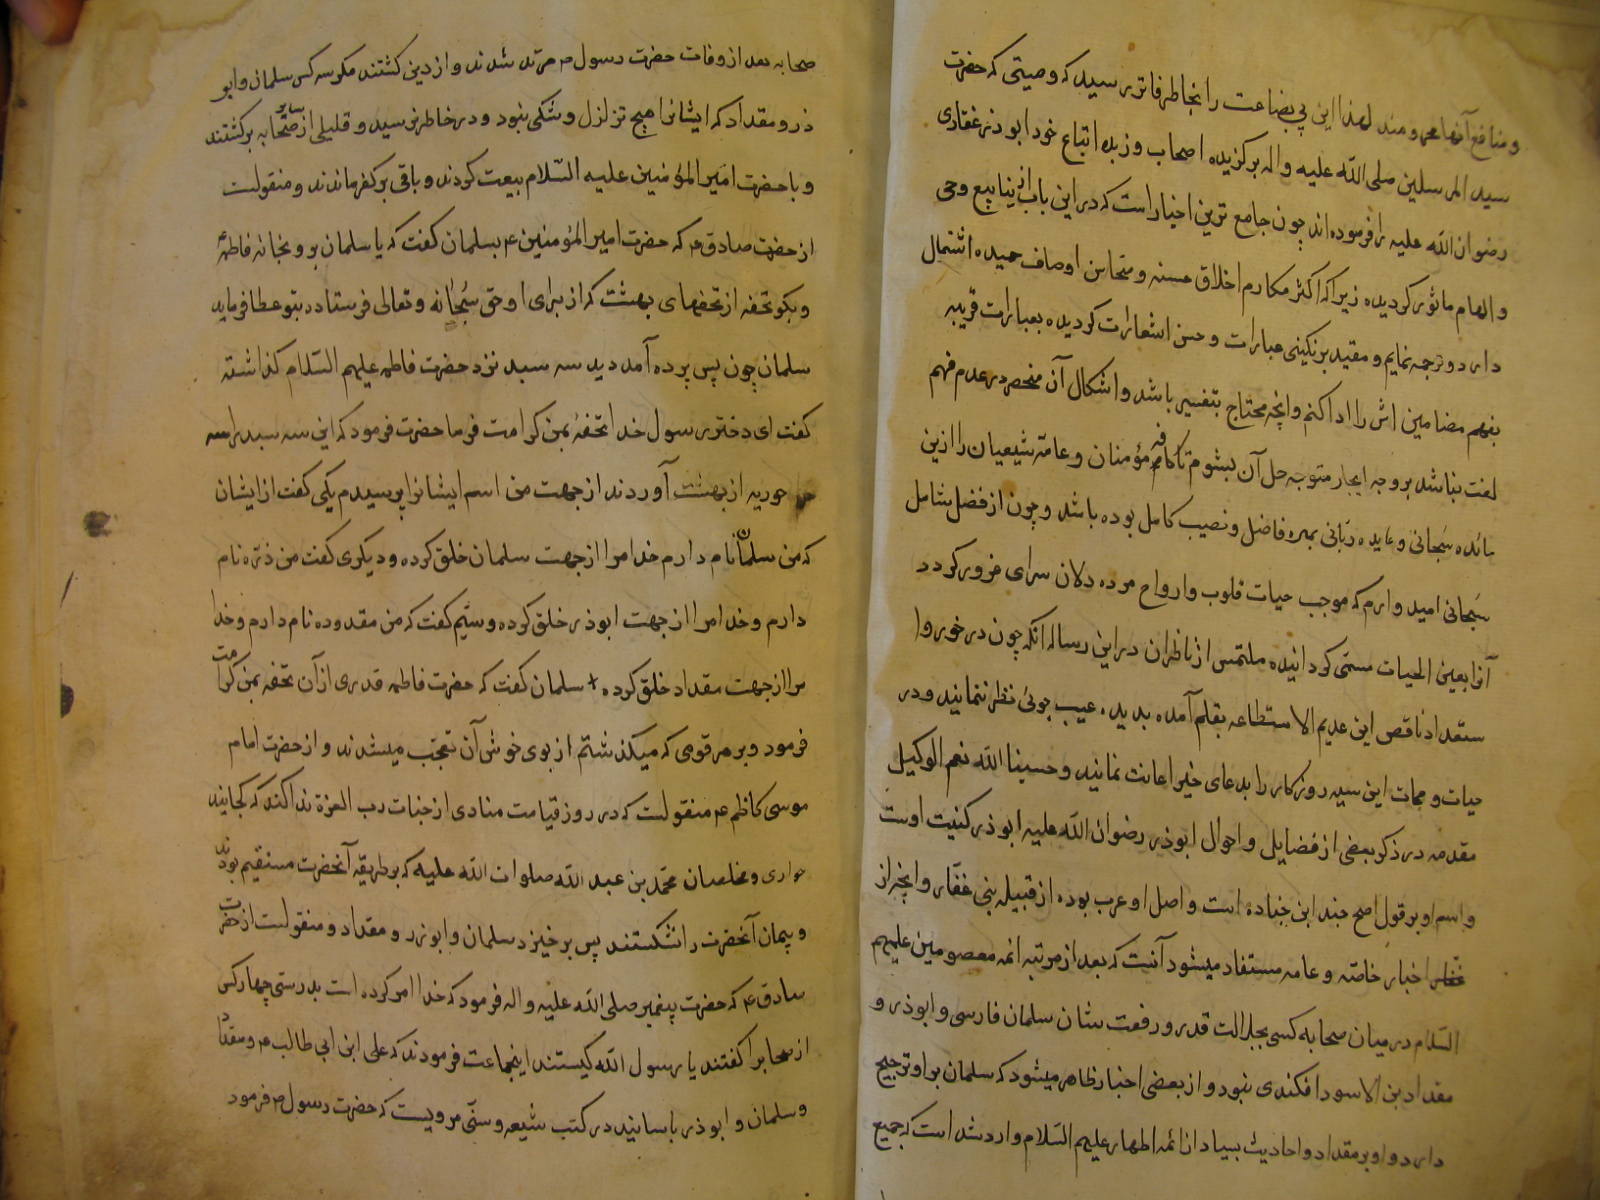 و منافع آنها بهره‌مند لهذا این بی بضاعت را بخاطر فاتر رسید که وصیتی که حضرت
سید المرسلین صلی الله علیه و اله برکزیده اصحاب و زبده اتباع خود ابوذر غفاری
رضوان الله علیه را فرموده اند چون جامع ترین اخبار است که در این باب از ینابیع وحی
و الهام ماثور کردیده زیرا که اکثر مکارم اخلاق حسنه و محاسن اوصاف حمیده اشتمال
دارد ترجمه نمایم و مقید برنکینی عبارات و حسن استعارات کردیده بعبارات قریبه
بفهم مضامین اش را ادا کنم و انچه محتاج بتفسیر باشد و اشکال آن منحصر در عدم فهم
لغت نباشد بر وجه ایجاز متوجه حل آن بشوم تا کافه مؤمنان و عامه شیعیان را ازین
مائده سبحانی و عایده ربانی بهره فاضل و نصیب کامل بوده باشد و چون از فضل شامل
سبحانی امید وارم که موجب حیات قلوب و ارواح مرده دلان سرای غرور کردد
آنرا بعین الحیات مسمی کردانیده ملتمس از ناظران در این رساله انکه چون در خور و ا
ستعداد ناقص این عدیم الاستطاعه بقلم آمده بدیده عیب جوئی نظر ننمایند و در
حیات و ممات این سیه روزکار را بدعای خیر اعانت نمایند و حسبنا الله نعم الوکیل
مقدمه در ذکر بعضی از فضایل و احوال ابوذر رضوان الله علیه ابوذر کنیت اوست
و اسم او بر قول اصح جندب ابن جناده است و اصل او عرب بوده از قبیله بنی غفار و انچه از
اخبار خاصه و عامه مستفاد میشود آنست که بعد از مرتبه ائمه معصومین علیهم
السلام در میان صحابه کسی بجلالت قدر و رفعت شان سلمان فارسی و ابوذر و
مقداد بن الاسود افکندی نبود و از بعضی اخبار ظاهر میشود که سلمان بر او ترجیح
دارد و او بر مقداد و احادیث بسیار از ائمه اطهار علیهم السلام وارد شده است که جمیع
صحابه بعد از وفات حضرت رسول ص مرتد شدند و از دین کشتند مکر سه کس سلمان و ابو
ذر و مقداد که ایشانرا هیچ تزلزل و شکی نبود و در خاطر نرسید و قلیلی از سایر صحابه برکشتند
و با حضرت امیر المؤمنین علیه السلام بیعت کردند و باقی بر کفر ماندند و منقولست
از حضرت صادق ع که حضرت امیر المؤمنین ع بسلمان کفت که یا سلمان برو بخانه فاطمه ع
و بکو تحفه از تحفهای بهشت که از برای او حق سبحانه و تعالی فرستاده بتو عطا فرماید
سلمان چون پس پرده آمد دید سه سبد نزد حضرت فاطمه علیهم السلام کذاشته
کفت ای دختر رسول خدا تحفه بمن کرامت فرما حضرت فرمود که این سه سبد را سه
حوریه از بهشت آوردند از جهت من اسم ایشانرا پرسیدم یکی کفت از ایشان
که من سلمان نام دارم خدا مرا از جهت سلمان خلق کرده و دیکری کفت من ذره نام
دارم و خدا مرا از جهت ابوذر خلق کرده و سیم کفت که من مقدوده نام دارم و خدا
مرا از جهت مقداد خلق کرده سلمان کفت که حضرت فاطمه قدری از آن تحفه بمن کرامت
فرمود و بر هر قومی که میکذشتم از بوی خوش آن تعجب میشدند و از حضرت امام
موسی کاظم ع منقولست که در روز قیامت منادی از جناب رب العزة ندا کند که کجایند
حواری و مخلصان محمد بن عبد الله صلوات الله علیه که بر طریقه آنحضرت مستقیم بودند
و پیمان آنحضرت را نشکستند پس برخیزد سلمان و ابوذر و مقداد و منقولست از حضرت
صادق ع که حضرت پیغمبر صلی الله علیه و اله فرمود که خدا امر کرده است بدوستی چهار کس
از صحابه را کفتند یا رسول الله کیستند اینجماعت فرمودند که علی ابن ابی طالب ع و مقداد
و سلمان و ابوذر باسانید در کتب شیعه و سنی مرویست که حضرت رسول ص فرمود